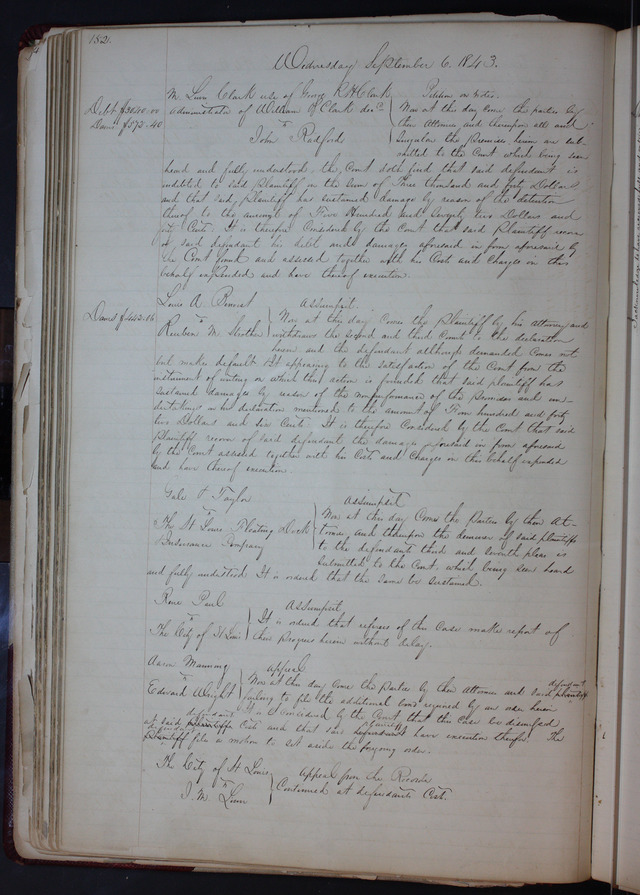 182.
Wednesday September 6. 1843.
M. Linn Clark use of George R H Clark
administrator of William Clark decd.
vs
John Radford
Debt $3040.00
Dam $572.40
Petition in Debt.
Now at this day come the parties by
their Attornies and thereupon all and
Singular the Premises herein are sub-
mitted to the Court which being seen
heard and fully understood, the Court doth find that said defendant is
indebted to said Plaintiff in the sum of Three thousand and forty Dollars
and that said Plaintiff has sustained damage by reason of the detention
thereof to the amount of Five Hundred and seventy two Dollars and
Cents. It is therefore Considered by the Court that said Plaintiff recover
of said defendant his debt and damages aforesaid in form aforesaid by
the Court found and assessed together with his Costs and Charges in this
behalf expended and have thereof execution.
Louis A. Benoist
vs
Reuben M.
Dam $442.06
Assumpsit.
Now at this day Comes the Plaintiff by his Attorney and
withdraws the second and third Counts to the declaration
herein and the defendant although demanded Comes not
but makes default. It appearing to the satisfaction of the Court from the
instrument of writing on which this action is founded that said plaintiff has
sustained damages by reason of the nonperformance of the Promises and un-
dertakings in his declaration mentioned to the amount of Four hundred and forty
two Dollars and six Cents. It is therefore Considered by the Court that said
Plaintiff recover of said defendant the damages aforesaid in form aforesaid
by the Court assessed together with his Costs and Charges in this behalf expended
and have thereof execution.
Gale & Taylor
vs
The St Louis Floating Dock
& Insurance Company
Assumpsit
Now at this day Come the Parties by their At-
tornies and thereupon the demurrer of said plaintiffs
to the defendants third and seventh pleas is
submitted to the Court, which being seen heard
and fully understood It is ordered that the same be sustained.
Rene Paul
vs
The City of St Louis
Assumpsit
It is ordered that referees of this Case make report of
their Progress herein without delay.
Aaron Manning
vs
Edward Wright
Appeal
Now at this day Come the Parties by their Attornies and said plaintiff defendant
failing to file the additional bond required by an order herein
It is considered by the Court that the Case be dismissed
at said plaintiffs defendants Costs and that said defendant plaintiff have execution therefor. The
plaintiff defendant files a motion to set aside the foregoing order.
The City of St Louis
vs
J. M. Linn
Appeal from the Recorder
Continued at defendants Cost.